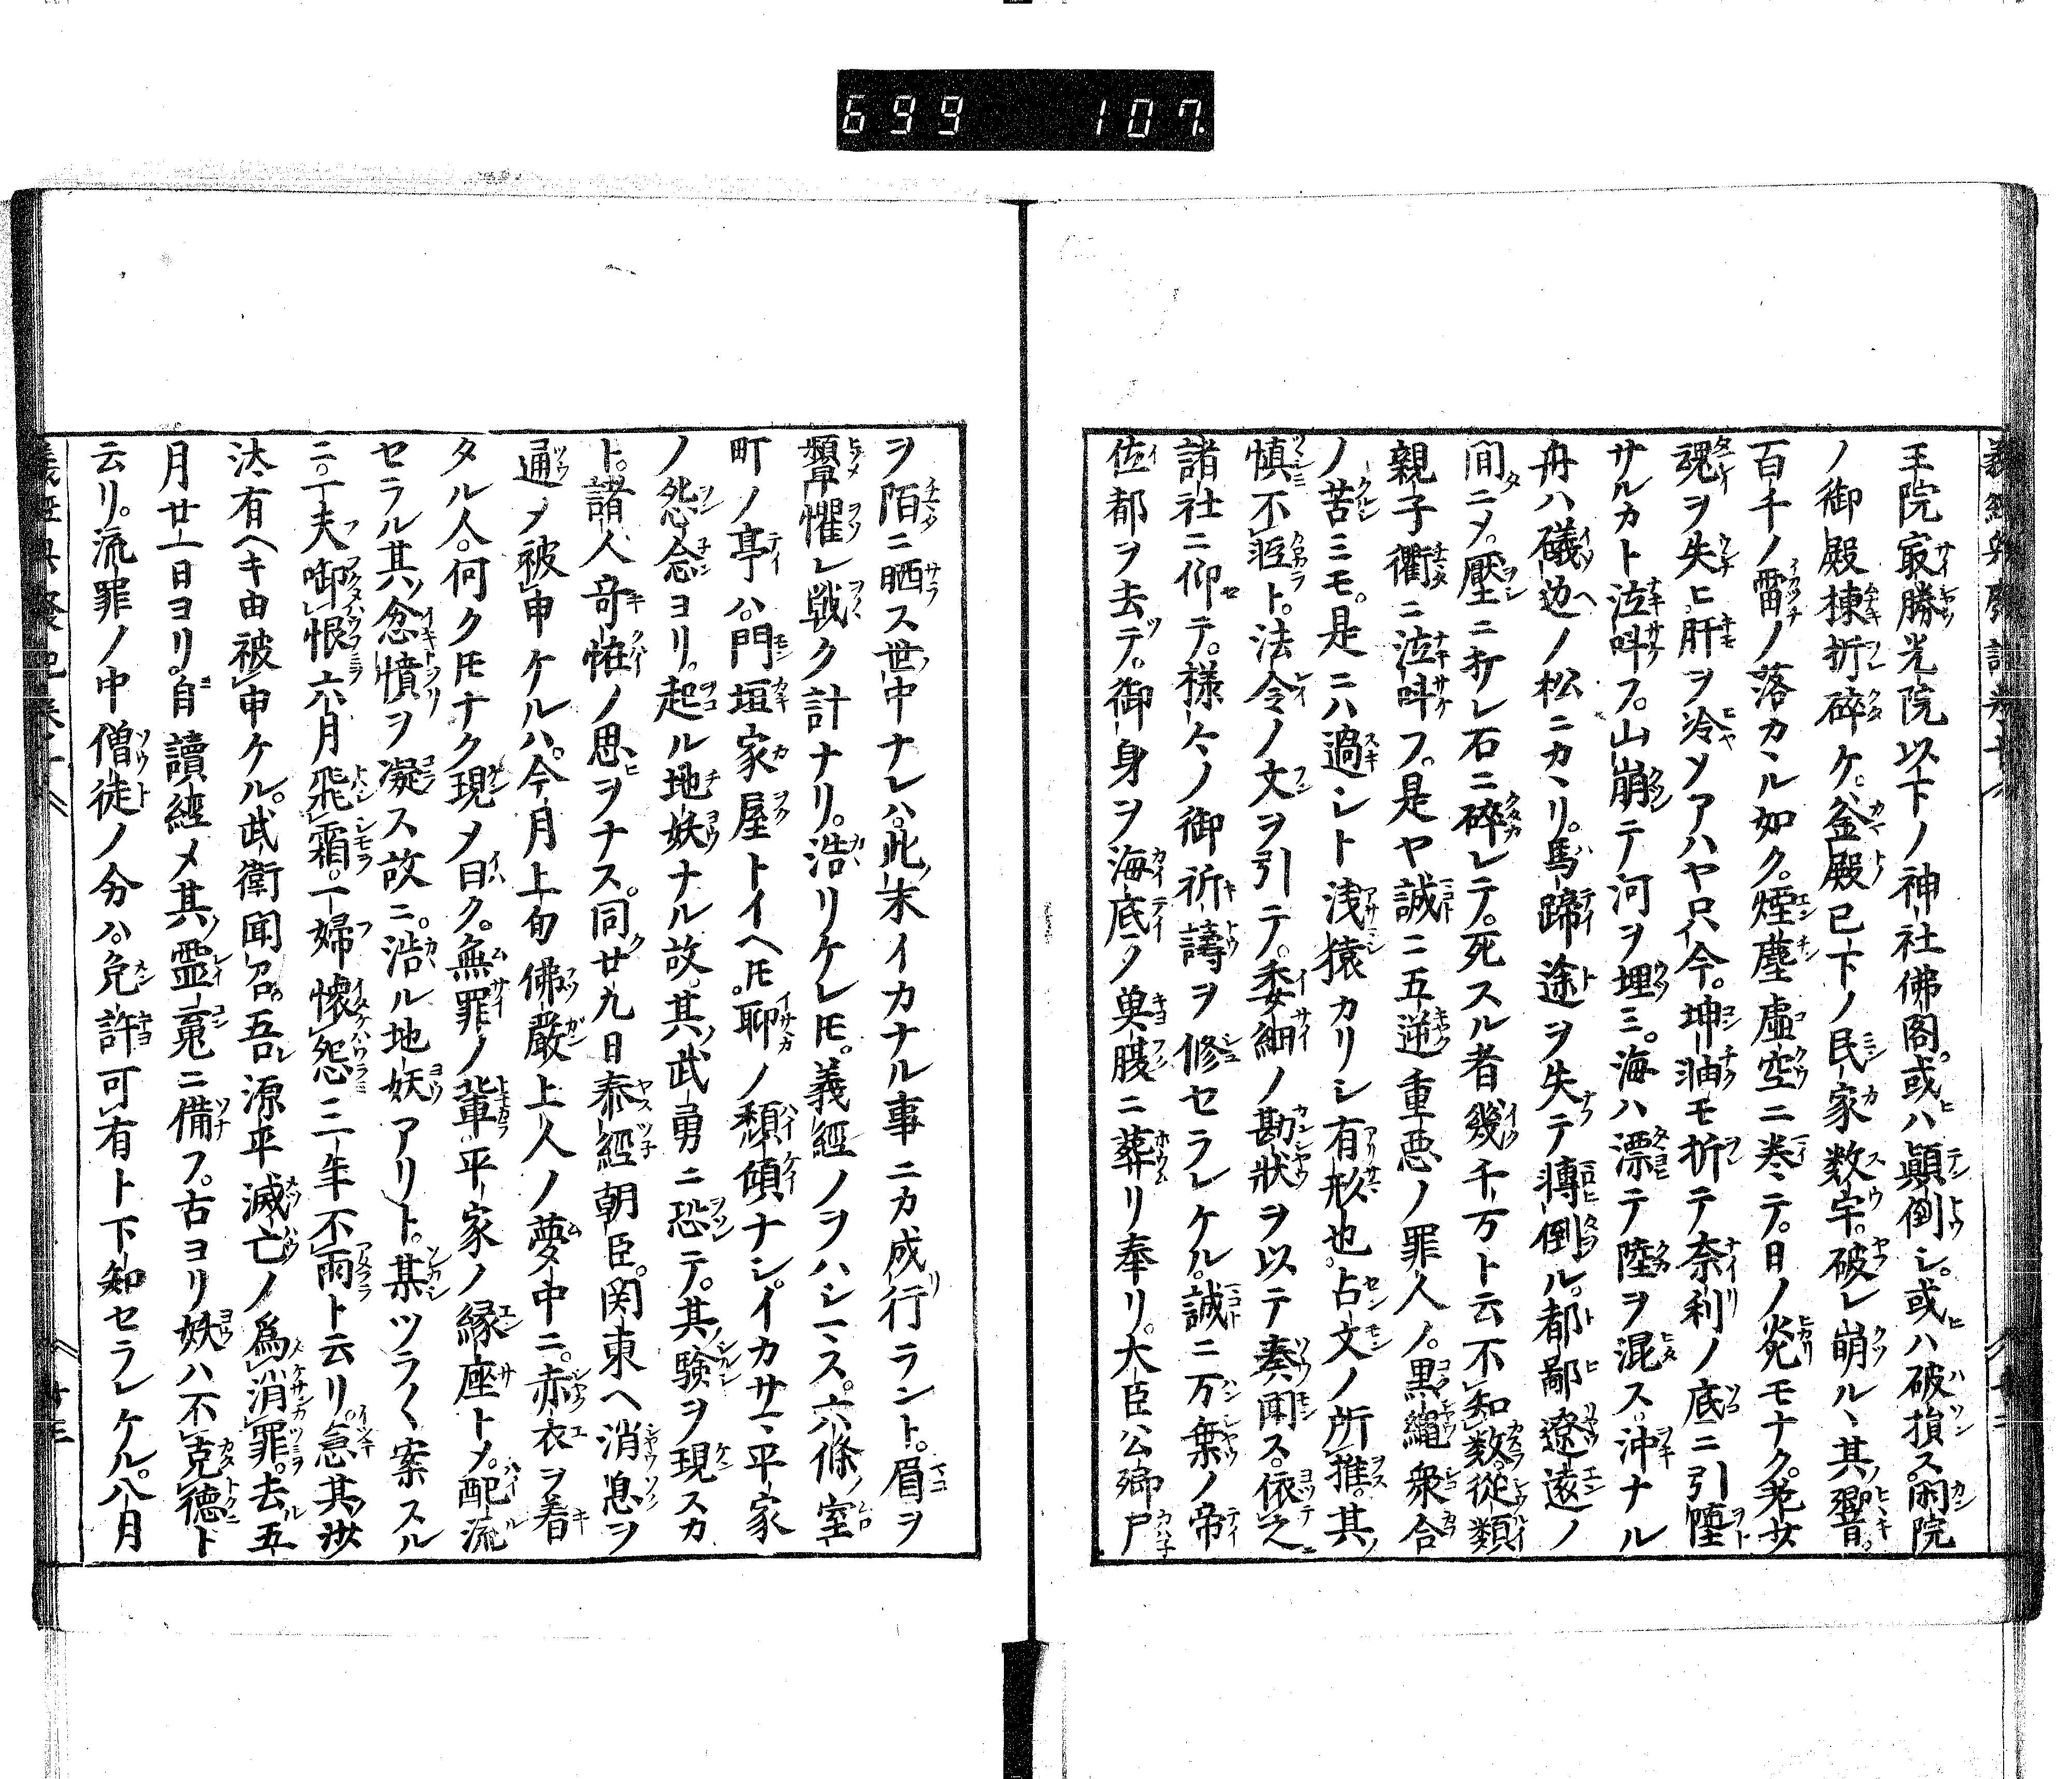 699 107
王院最勝光院以下ノ神社佛閣。或ハ顛倒シ。或ハ破損ス。閑院
ノ御殿棟折碎ケ。釜殿已下ノ民家数宇。破レ崩ル、其響。
百千ノ雷ノ落カヽル如ク。煙塵虚空ニ巻テ。日ノ炎モナク。老女
魂ヲ失ヒ。肝ヲ冷ソアハヤ只今。坤軸モ折テ奈利ノ底ニ引墮
サルカト泣叫フ。山崩テ河ヲ埋ミ。海ハ漂テ陸ヲ混ス。沖ナル
舟ハ礒辺ノ松ニカヽリ。馬蹄途ヲ失テ轉倒ル。都鄙遼遠ノ
間ニメ。壓ニ打レ石ニ碎レテ。死スル者幾千万ト云不知数。從類
親子衢ニ泣叫フ。是ヤ誠ニ五逆重悪ノ罪人ノ。黒繩衆合
ノ苦ミモ。是ニハ過シト浅猿カリシ有形也。占文ノ所推。其
慎不軽ト。法令ノ文ヲ引テ。委細ノ勘狀ヲ以テ奏聞ス。依之
諸社ニ仰テ。様々ノ御祈禱ヲ修セラレケル。誠ニ万乗ノ帝
佐都ヲ去テ。御身ヲ海底ノ奥膓ニ葬リ奉リ。大臣公卿尸
ヲ陌ニ晒ス世中ナレハ。此末イカナル事ニカ成行ラント。眉ヲ
顰懼レ戦ク計ナリ。浩リケレ𪜈。義經ノヲハシマス。六條室
町ノ亭ハ。門垣家屋トイヘ𪜈。聊ノ頽傾ナシ。イカサマ平家
ノ怨念ヨリ。起ル地妖ナル故。其武勇ニ恐テ。其験ヲ現スカ
ト。諸人奇恠ノ思ヲナス。同廿九日泰經朝臣。関東ヘ消息ヲ
通メ被申ケルハ。今月上旬佛嚴上人ノ夢中ニ。赤衣ヲ着
タル人。何ク𪜈ナク現メ曰ク。無罪ノ輩平家ノ縁座トメ。配流
セラル其念憤ヲ凝ス故ニ。浩ル地妖アリト。某ツラ〱案スル
ニ。一夫啣恨六月飛霜。一婦懐怨三年不雨ト云リ。急其沙
汰有ヘキ由被申ケル。武衛聞召。吾源平滅亡ノ爲消罪。去五
月廿一日ヨリ。自讀經メ其霊䰟ニ備フ。古ヨリ妖ハ不克德ト
云リ。流罪ノ中僧徒ノ分ハ。免許可有ト下知セラレケル。八月